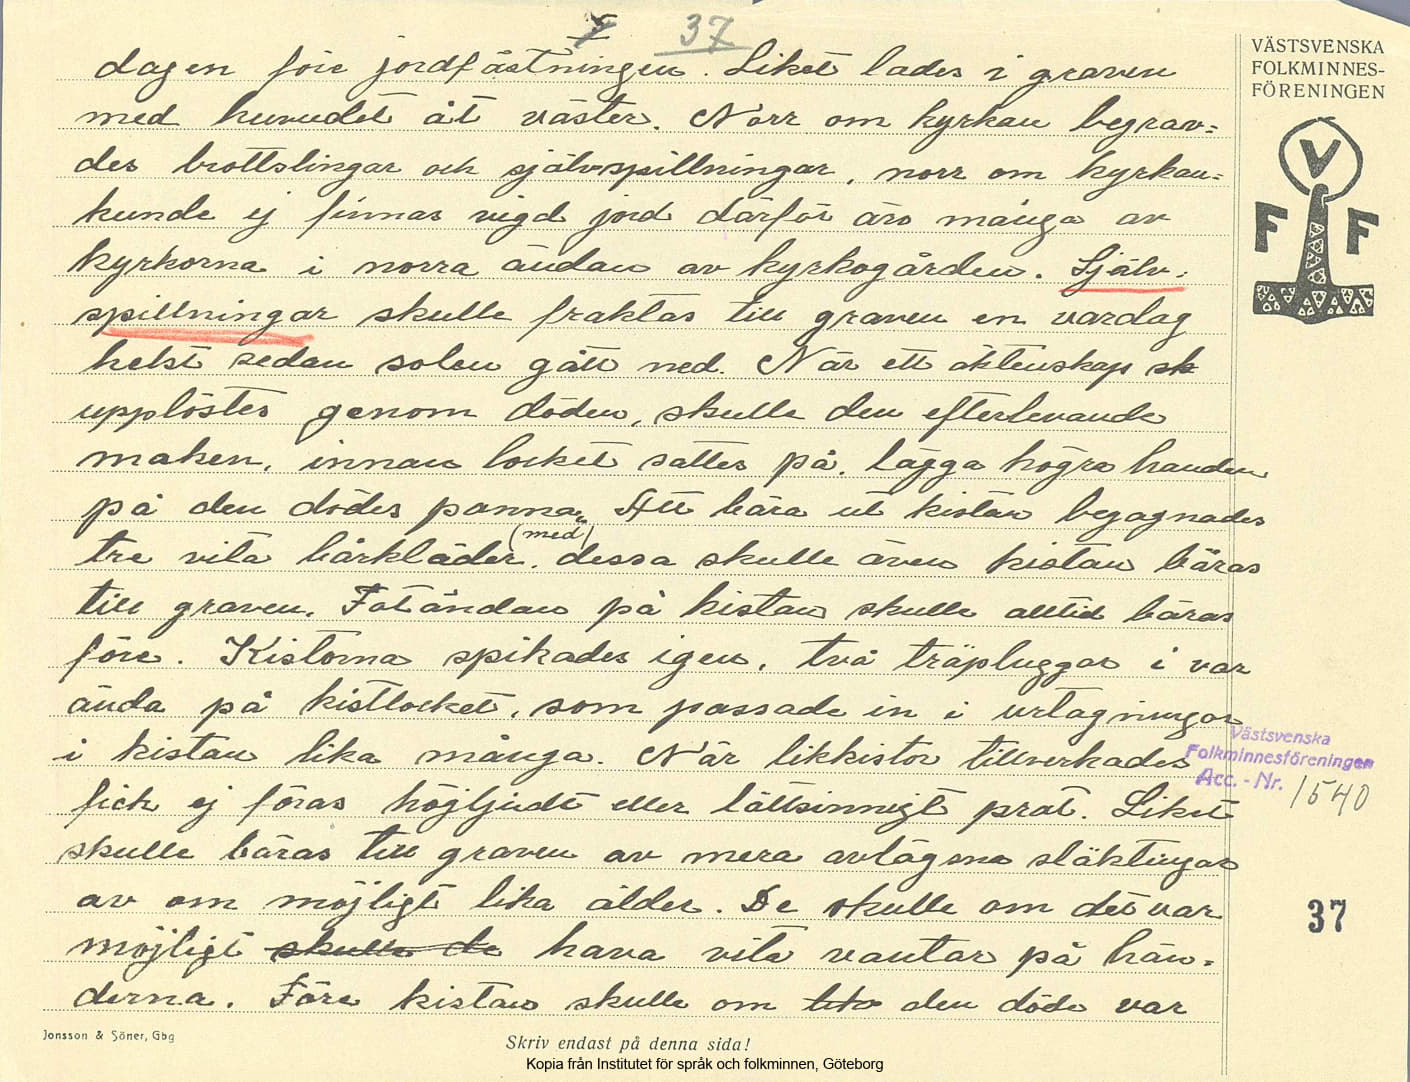 37
dagen före jordfästningen. Liket lades i graven
med huvudet åt väster. Norr om kyrkan begrav=
des brottslingar och självspillningar, norr om kyrkan=
kunde ej finnas vigd jord därför äro många av
kyrkorna i norra ändan av kyrkogården. Själv-
spillningar skulle fraktas till graven en vardag
helst sedan solen gått ned. När ett äktenskap sk
upplöstes genom döden, skulle den efterlevande
maken, innan locket sattes på, lägga högra handen
på den dödes panna. Att bära ut kistan begagnades
(med)
tre vita bårkläder. dessa skulle även kistan bäras
till graven. Fotändan på kistan skulle alltid bäras
före. Kistorna spikades igen, två träpluggar i var
ända på kistlocket, som passade in i urtagningar
i kistan lika många. När likkistor tillverkades
fick ej föras höjljudt eller lättsinnigt prat. Liket
skulle bäras till graven av mera avlägsna släktingar
av om möjligt lika ålder. De skulle om det var
möjligt skulle de hava vita vantar på hän=
derna. Före kistan skulle om den döde var
VÄSTSVENSKA
FOLKMINNES-
FÖRENINGEN
V
F F
Västsvenska
Folkminnesföreningen
Acc. - Nr. 1540
37
Jonsson & Söner, Gbg
Skriv endast på denna sida!
Kopia från Institutet för språk och folkminnen, Göteborg